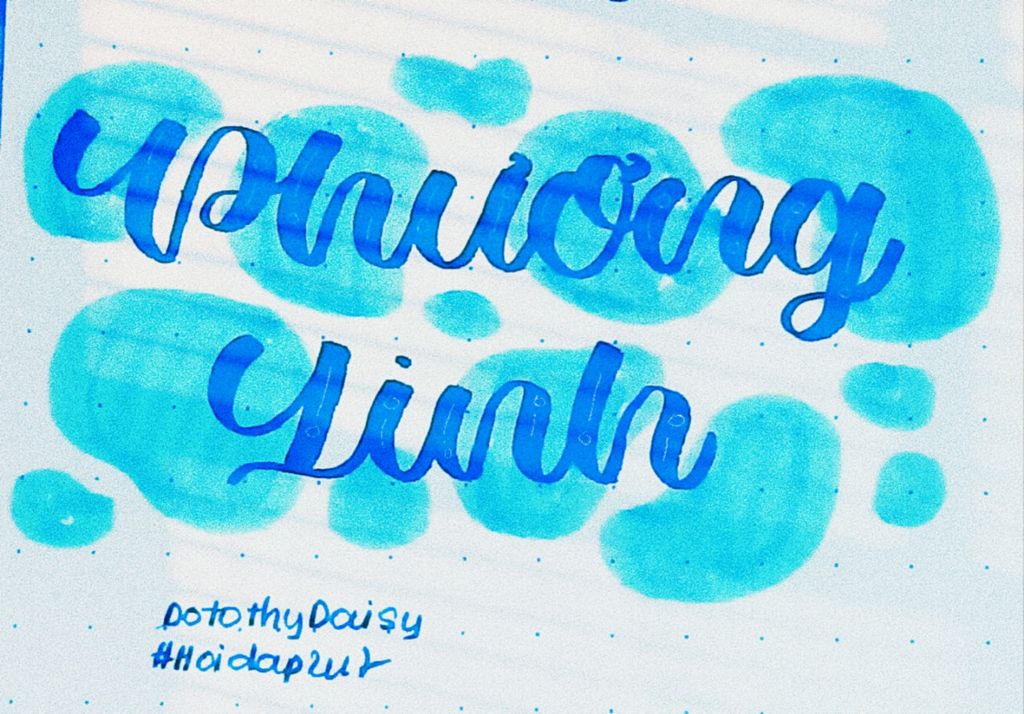 Phương
Linh
DorothyDaisy
#Hoidap247